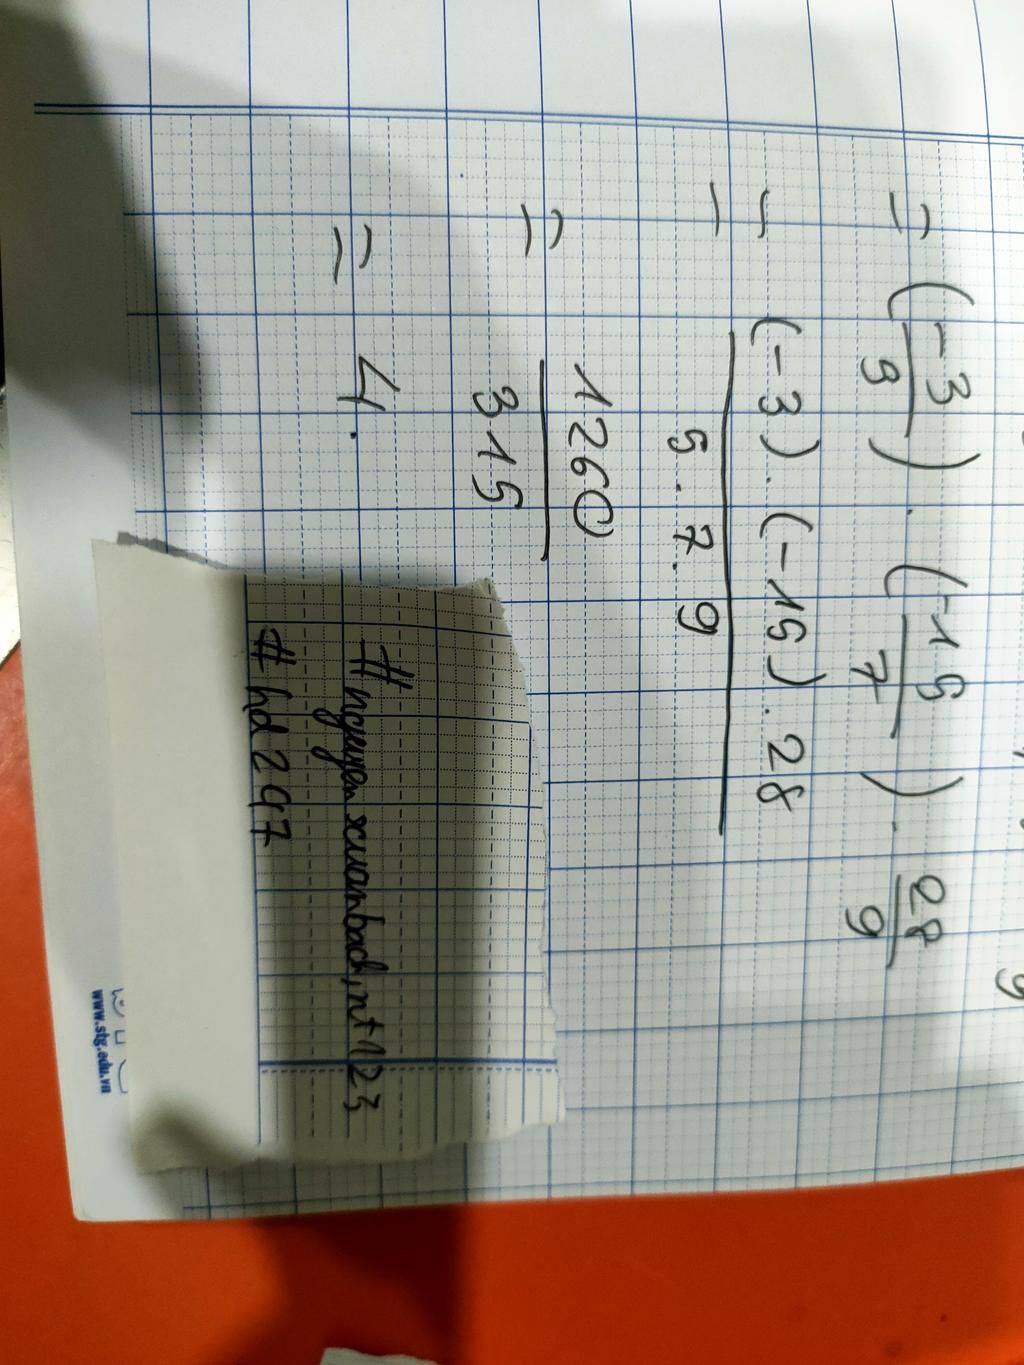 = (-3/9) . (-15/7) . 28/9
= (-3) . (-15) . 28 / 5 . 7 . 9
= 1260/315
= 4.
#nguyenxuanbach,nt123
#hd247
www.stg.edu.vn